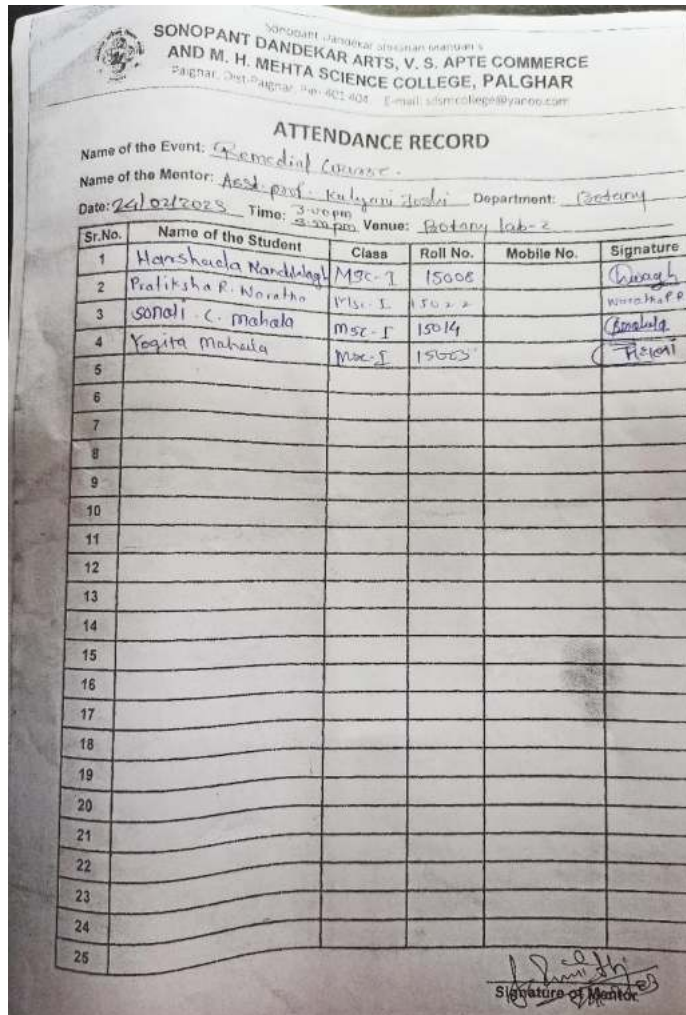 Sonopant Dandekar Shikshan Mandali's
SONOPANT DANDEKAR ARTS, V. S. APTE COMMERCE
AND M. H. MEHTA SCIENCE COLLEGE, PALGHAR
Palghar, Dist-Palghar, Pin- 401 404. E-mail: sdsmcollege@yahoo.com
ATTENDANCE RECORD
Name of the Event: Remedial Course.
Name of the Mentor: Asst. prof. Kalyani Joshi Department: Botany
Date: 24/02/2023 Time: 3-00 pm Venue: Botany lab-2
Sr.No. Name of the Student Class Roll No. Mobile No. Signature
1 Harshada MSC-I 15008 Wagh
2 Pratiksha R. Naratha Msc-I 15022
3 sonali . C. mahala msc-I 15014
4 Yogita mahala Msc-I
5
6
7
8
9
10
11
12
13
14
15
16
17
18
19
20
21
22
23
24
25
Signature of Mentor